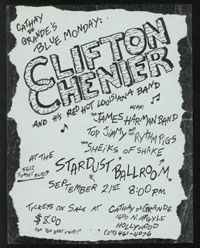 CATHAY
DE GRANDE'S
BLUE MONDAY:
CLIFTON
CHENIER
AND HIS RED HOT LOUISIANA BAND
WITH:
THE JAMES HARMAN BAND
TOP JIMMY AND THE RYTHM PIGS
THE SHEIKS OF SHAKE
AT THE
STARDUST BALLROOM
5612 SUNSET BLVD
SEPTEMBER 21ST 8:00 PM.
TICKETS ON SALE AT CATHAY DE GRANDE
$8.00 1600 N. ARGYLE
HOLLYWOOD
(213) 461-4076